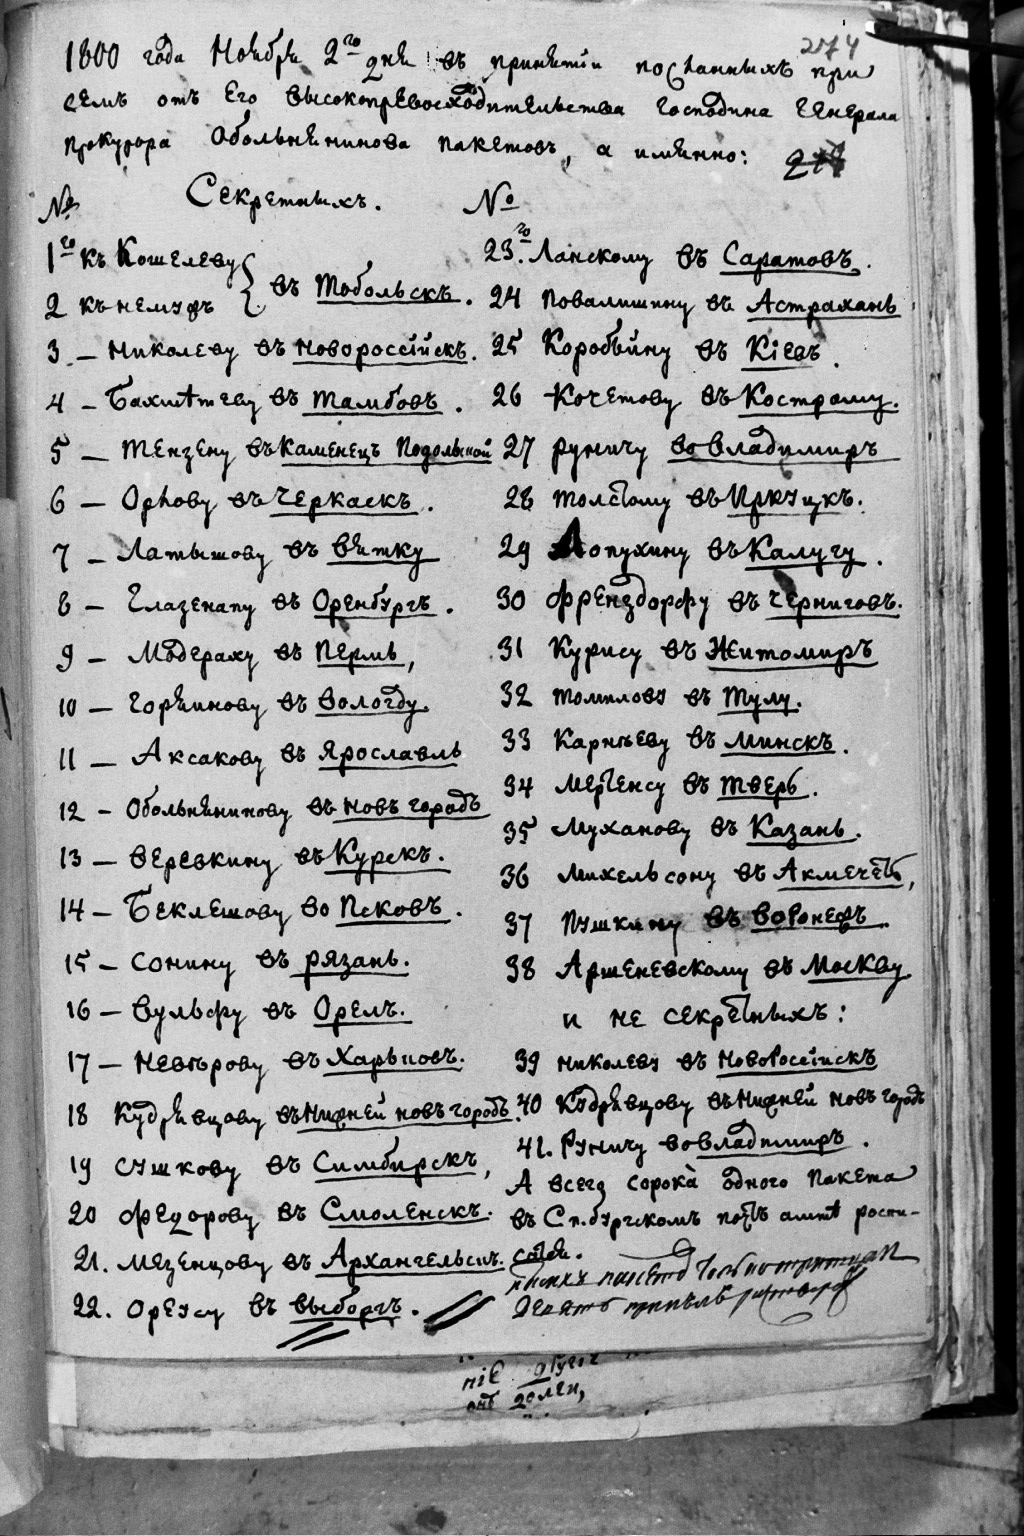 274
1800 года Ноября 2го дня въ принятіи посланныхъ при
семъ отъ Его высокопревосходительства Господина Генерала
прокурора Обольянинова пакетовъ, а имянно:
№ Секретныхъ.
1го къ Кошелеву } въ Тобольскъ.
2 къ немуж
3 – Николеву въ Новороссійскъ.
4 – Бахметеву въ Тамбовъ.
5 – Тензену въ Каменецъ Подольской
6 – Орлову въ Черкаскъ.
7 – Латышову въ Вятку
8 – Глазенапу въ Оренбургъ.
9 – Модераху въ Пермь,
10 – Горяинову въ Вологду.
11 – Аксакову въ Ярославль
12 – Обольянинову въ Новъ городъ
13 – Веревкину въ Курскъ.
14 – Беклешову во Псковъ.
15 – Сонину въ Рязань.
16 – Вульфу въ Орелъ.
17 – Невѣрову въ Харьковъ.
18 Кудрявцову въ Нижней новъ городъ.
19 Сушкову въ Симбирскъ,
20 Федорову въ Смоленскъ.
21. Мезенцову въ Архангельскъ.
22. Ореусу въ Выборгъ.
№
23.го Ланскому въ Саратовъ.
24 Повалишину въ Астрахань
25 Коробьину въ Кіевъ.
26 Кочетову въ Кострому.
27 Руничу во Владимиръ
28 Толстому въ Иркуцкъ.
29 Лопухину въ Калугу.
30 Френздорфу въ Черниговъ.
31 Курису въ Житомиръ
32 Томилову въ Тулу.
33 Карнѣеву въ Минскъ.
34 Мертенсу въ Тверь.
35 Муханову въ Казань.
36 Михельсону въ Акмечеть,
37 Пушкину въ Воронежъ.
38 Аршеневскому въ Москву
и не секретныхъ:
39 Николеву въ Новоросеійскъ
40 Кудрявцову въ Нижней новъ городъ
41. Руничу во Владимиръ.
А всего сорока одного пакета
въ Сп.бургскомъ почтъ амтѣ роспи-